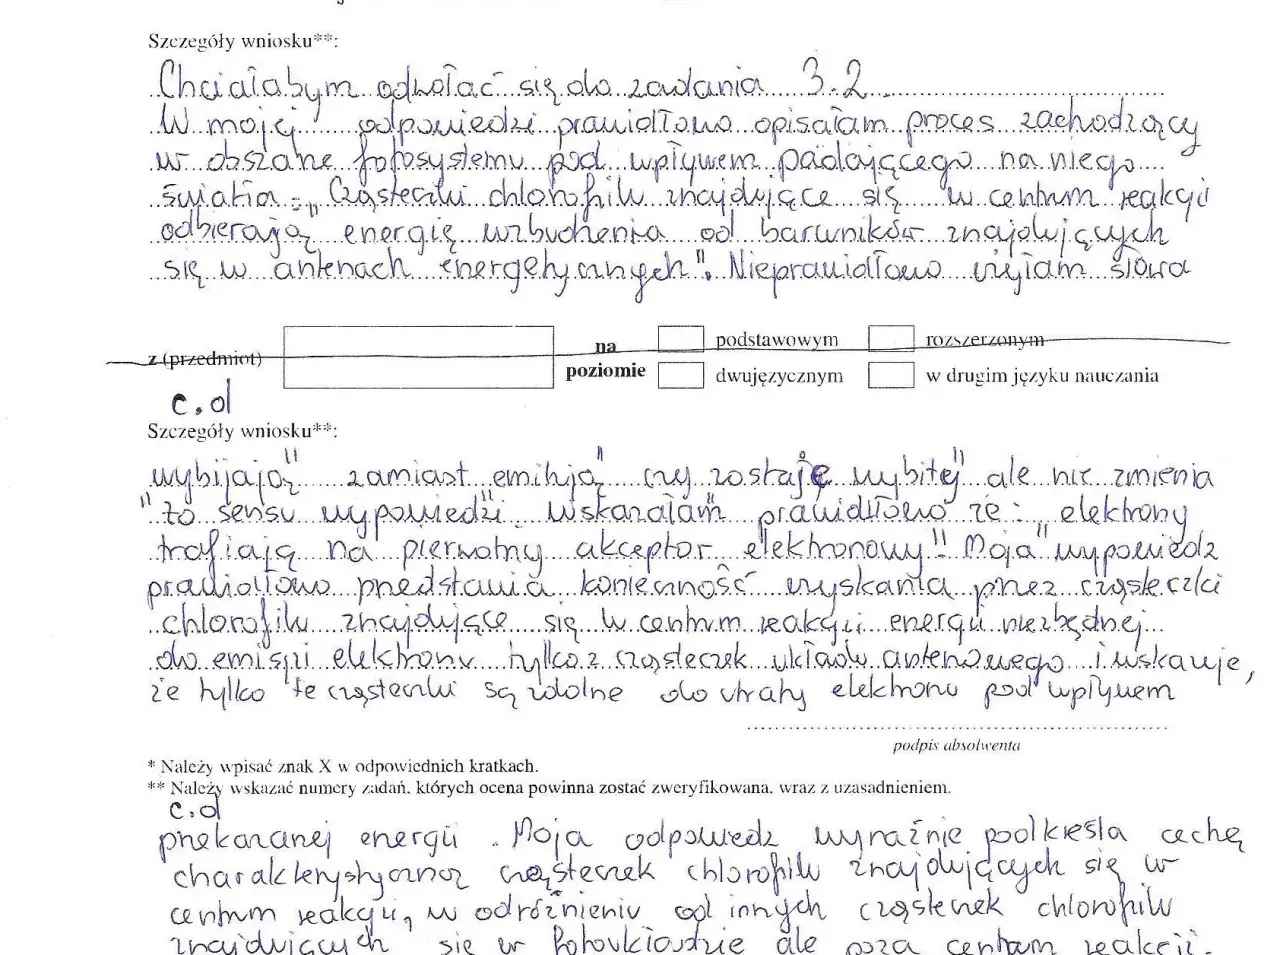 Szczegóły wniosku**:
Chciałabym odwołać się do zadania 3.2.
W mojej odpowiedzi prawidłowo opisałam proces zachodzący
w obszarze fotosystemu pod wpływem padającego na niego
światła: "Cząsteczki chlorofilu znajdujące się w centrum reakcji
odbierają energię wzbudzenia od barwników znajdujących
się w antenach energetycznych". Nieprawidłowo użyłam słowa
z (przedmiot)
na poziomie
podstawowym
rozszerzonym
dwujęzycznym
w drugim języku nauczania
c.d
Szczegóły wniosku**:
wybijają" zamiast "emitują" czy zostaje wybity" ale nie zmienia
to sensu wypowiedzi. Wskazałam prawidłowo że: "elektrony
trafiają na pierwotny akceptor elektronowy". Moja wypowiedź
prawidłowo przedstawia konieczność uzyskania przez cząsteczki
chlorofilu znajdujące się w centrum reakcji energii niezbędnej
do emisji elektronu tylko z cząsteczek układów antenowego i wskazuje,
że tylko te cząsteczki są zdolne do utraty elektronu pod wpływem
podpis absolwenta
* Należy wpisać znak X w odpowiednich kratkach.
** Należy wskazać numery zadań, których ocena powinna zostać zweryfikowana, wraz z uzasadnieniem.
c.d
przekazanej energii. Moja odpowiedź wyraźnie podkreśla cechę
charakterystyczną cząsteczek chlorofilu znajdujących się w
centrum reakcji, w odróżnieniu od innych cząsteczek chlorofilu
znajdujących się w fotoukładzie ale poza centrum reakcji.